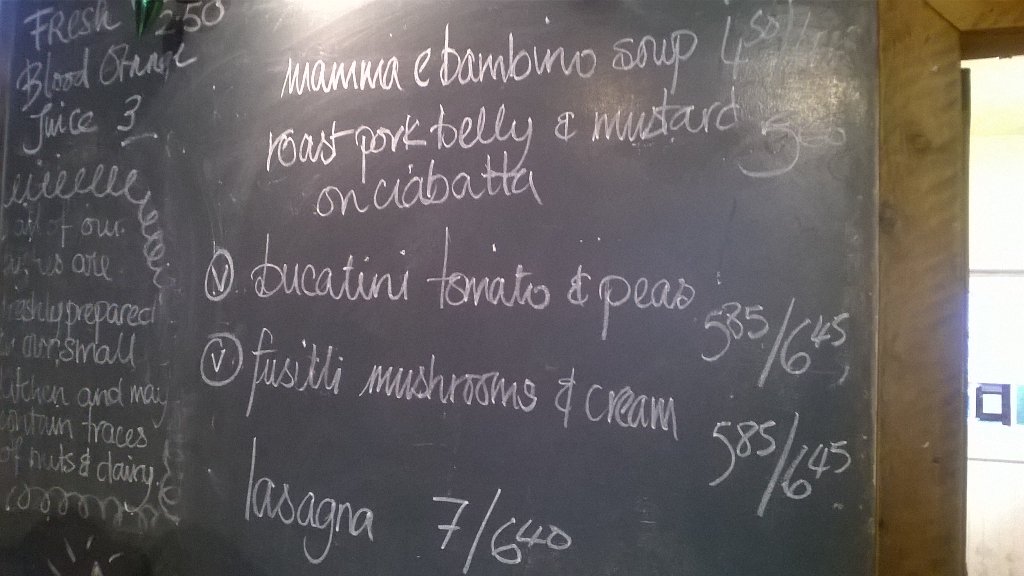 Fresh 2.50
Blood Orange
Juice 3
all of our
are
freshly prepared
our small
kitchen and may
contain traces
of nuts & dairy.
mamma e bambino soup 4 50/
roast pork belly & mustard
on ciabatta
V bucatini tomato & peas
5 85/6 45
V fusilli mushrooms & cream
5 85/6 45
lasagna 7/6 40